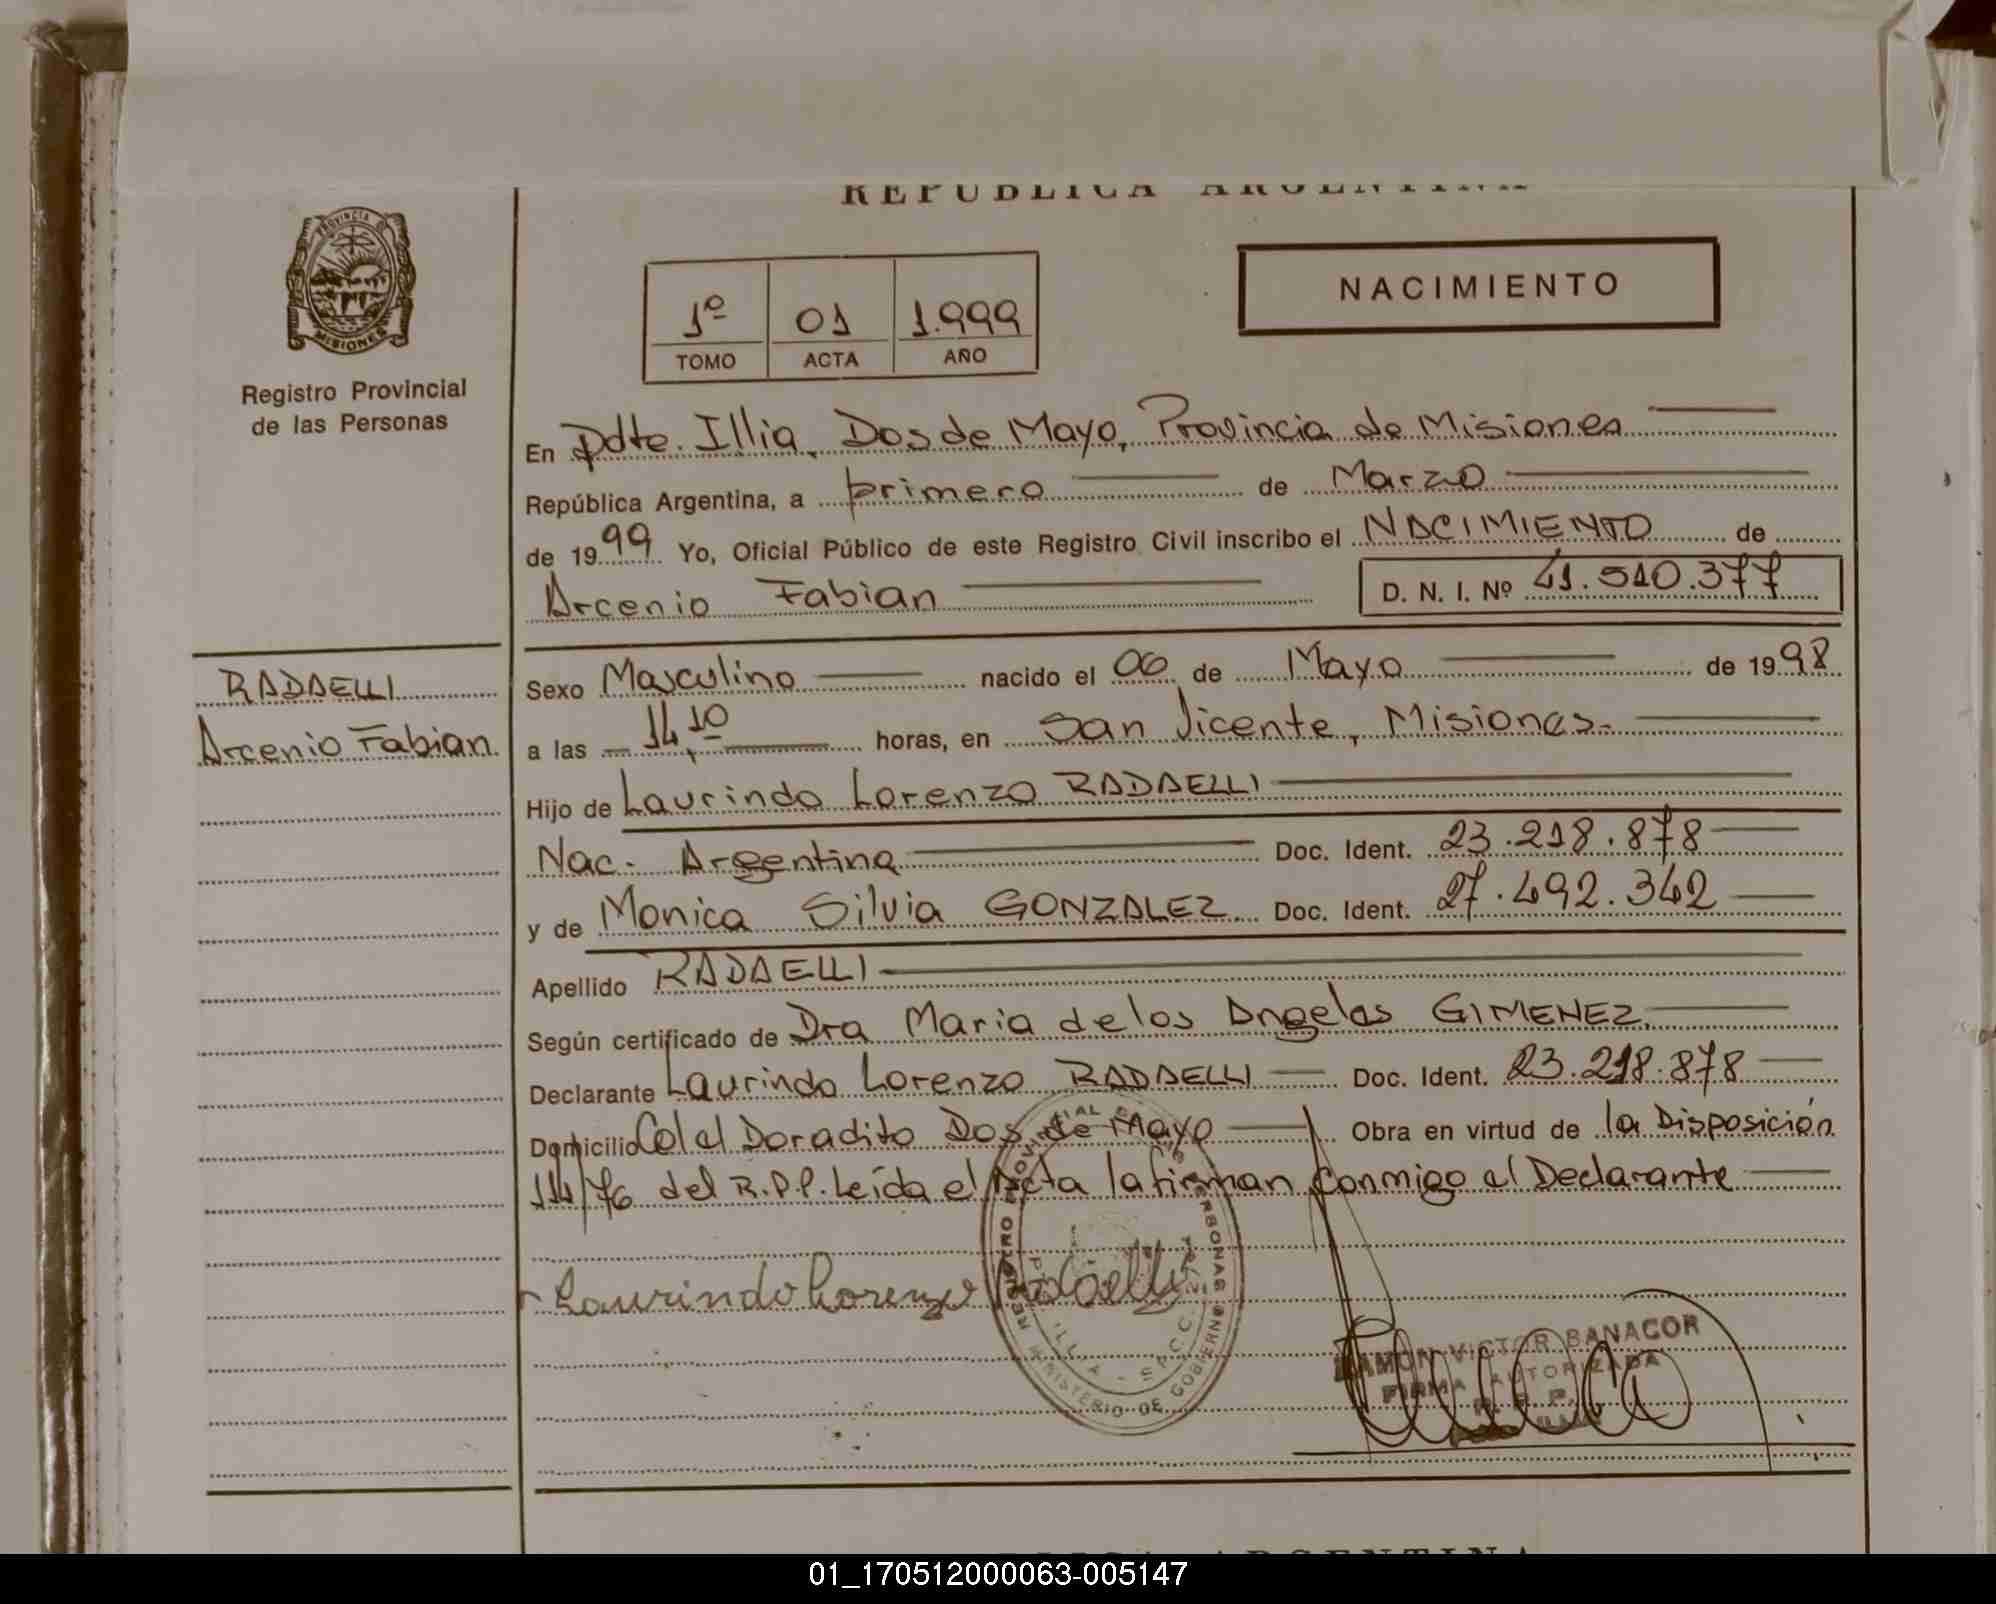 REPUBLICA ARGENTINA
PROVINCIA D
MISIONES
Registro Provincial
de las Personas
1º 01 1.999
TOMO ACTA AÑO
NACIMIENTO
En Pdte. Illia, Dos de Mayo, Provincia de Misiones
República Argentina, a primero de Marzo
de 1999 Yo, Oficial Público de este Registro Civil inscribo el NACIMIENTO de
Arcenio Fabian D. N. I. Nº 41.510.377
RADAELLI
Arcenio Fabian.
Sexo Masculino nacido el 06 de Mayo de 1998
a las 14,10 horas, en San Vicente, Misiones.
Hijo de Laurindo Lorenzo RADAELLI
Nac. Argentina Doc. Ident. 23.218.878
y de Monica Silvia GONZALEZ Doc. Ident. 27.492.342
Apellido RADAELLI
Según certificado de Dra Maria de los Angeles GIMENEZ.
Declarante Laurindo Lorenzo RADAELLI Doc. Ident. 23.218.878
Domicilio Col el Doradito Dos de Mayo Obra en virtud de la Disposición
114/76 del R.P.P. Leída el Acta la firman conmigo el Declarante
Laurindo Lorenzo Radaelli
MINISTERIO DE GOBIERNO
ILLIA
RAMON VICTOR BANACOR
FIRMA AUTORIZADA
R. P. P.
REPUBLICA ARGENTINA
01_170512000063-005147